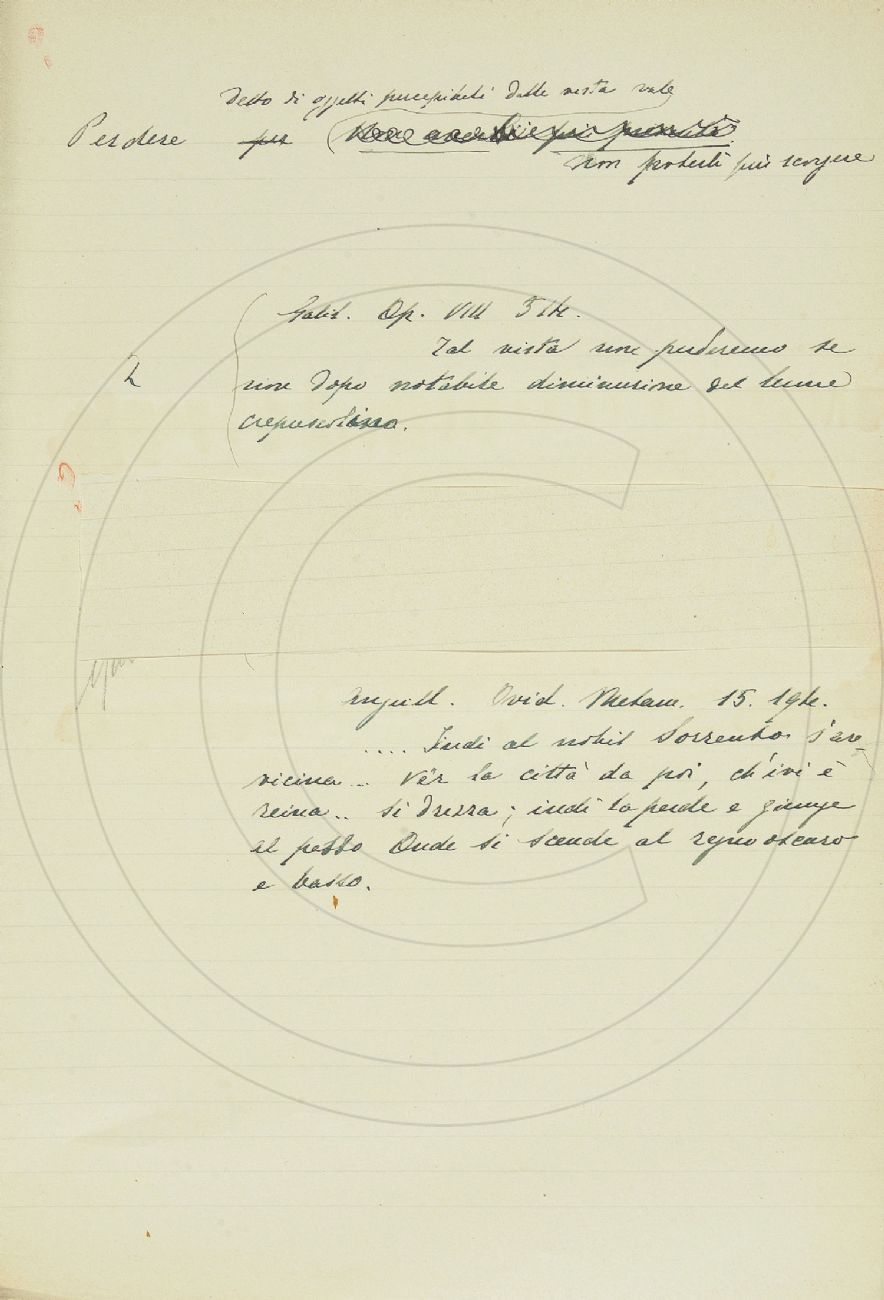 Detto di oggetti percepibili dalla vista vale
Perdere per
non poterli più scorgere
Galil. Op. VIII
Tal vista non perderemo se
2 non dopo notabile diminuzione del lume
crepuscolino.
Anguill. Ovid. Metam. 15.
.... Indi al nobil Sorrento s'av
vicina .. Ver la città da poi, ch'ivi è
reina .. si drizza; indi la perde e giunge
al passo Onde si scende al regno oscuro
e basso.